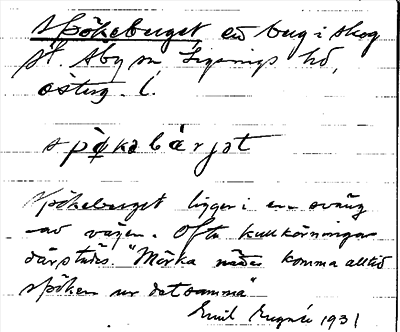 Spökeberget ett berg i skog
St. Åby sn, Lysings hd,
Österg. l.
spø̀kabærjat
Spökeberget ligger i en sväng
av vägen. Ofta kullkörningar
därstädes. "Mörka komma alltid
spöken ur det samma"
Emil 1931